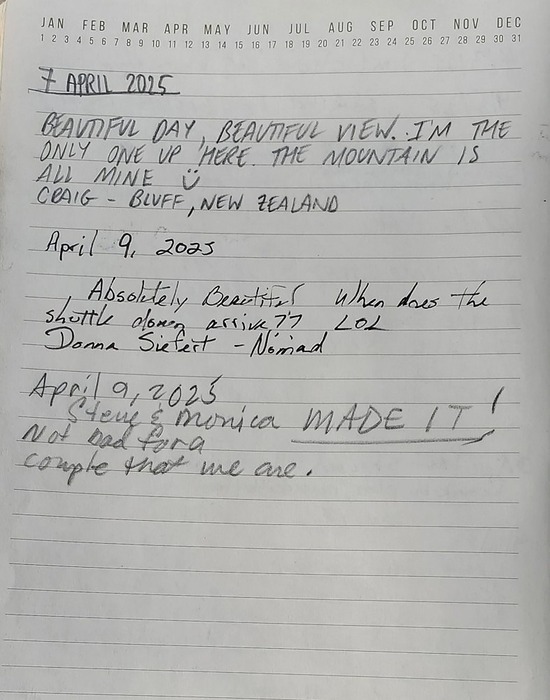 JAN FEB MAR APR MAY JUN JUL AUG SEP OCT NOV DEC
1 2 3 4 5 6 7 8 9 10 11 12 13 14 15 16 17 18 19 20 21 22 23 24 25 26 27 28 29 30 31
7 APRIL 2025
BEAUTIFUL DAY, BEAUTIFUL VIEW. I'M THE
ONLY ONE UP HERE. THE MOUNTAIN IS
ALL MINE ☺
CRAIG - BLUFF, NEW ZEALAND
April 9, 2025
Absolutely Beautiful When does the
shuttle down arrive?? LOL
Donna Siefert - Nomad
April 9, 2025
Steve & Monica MADE IT!
Not bad for a
couple that we are.